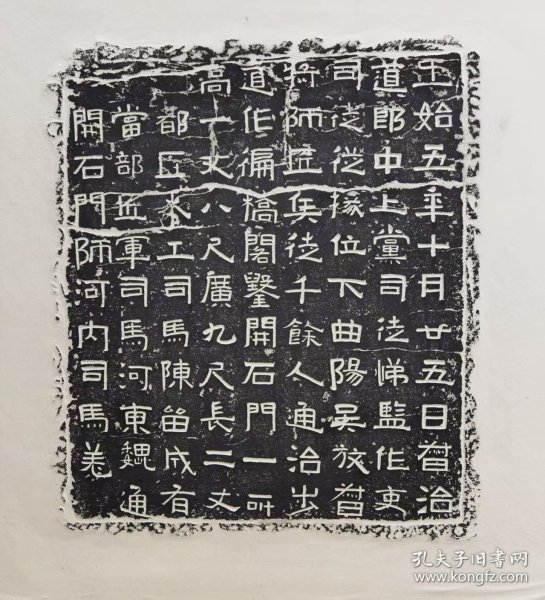 正始五年十月廿五日督治
道郎中上黨司徒悌監作吏
司徒從掾位下曲陽吳放督
將師匠兵徒千餘人通治步
道作偏橋閣鑿開石門一所
高一丈八尺廣九尺長二丈
都匠木工司馬陳留成有
當部匠軍司馬河東魏通
開石門師河內司馬羌
孔夫子旧书网
www.kongfz.com